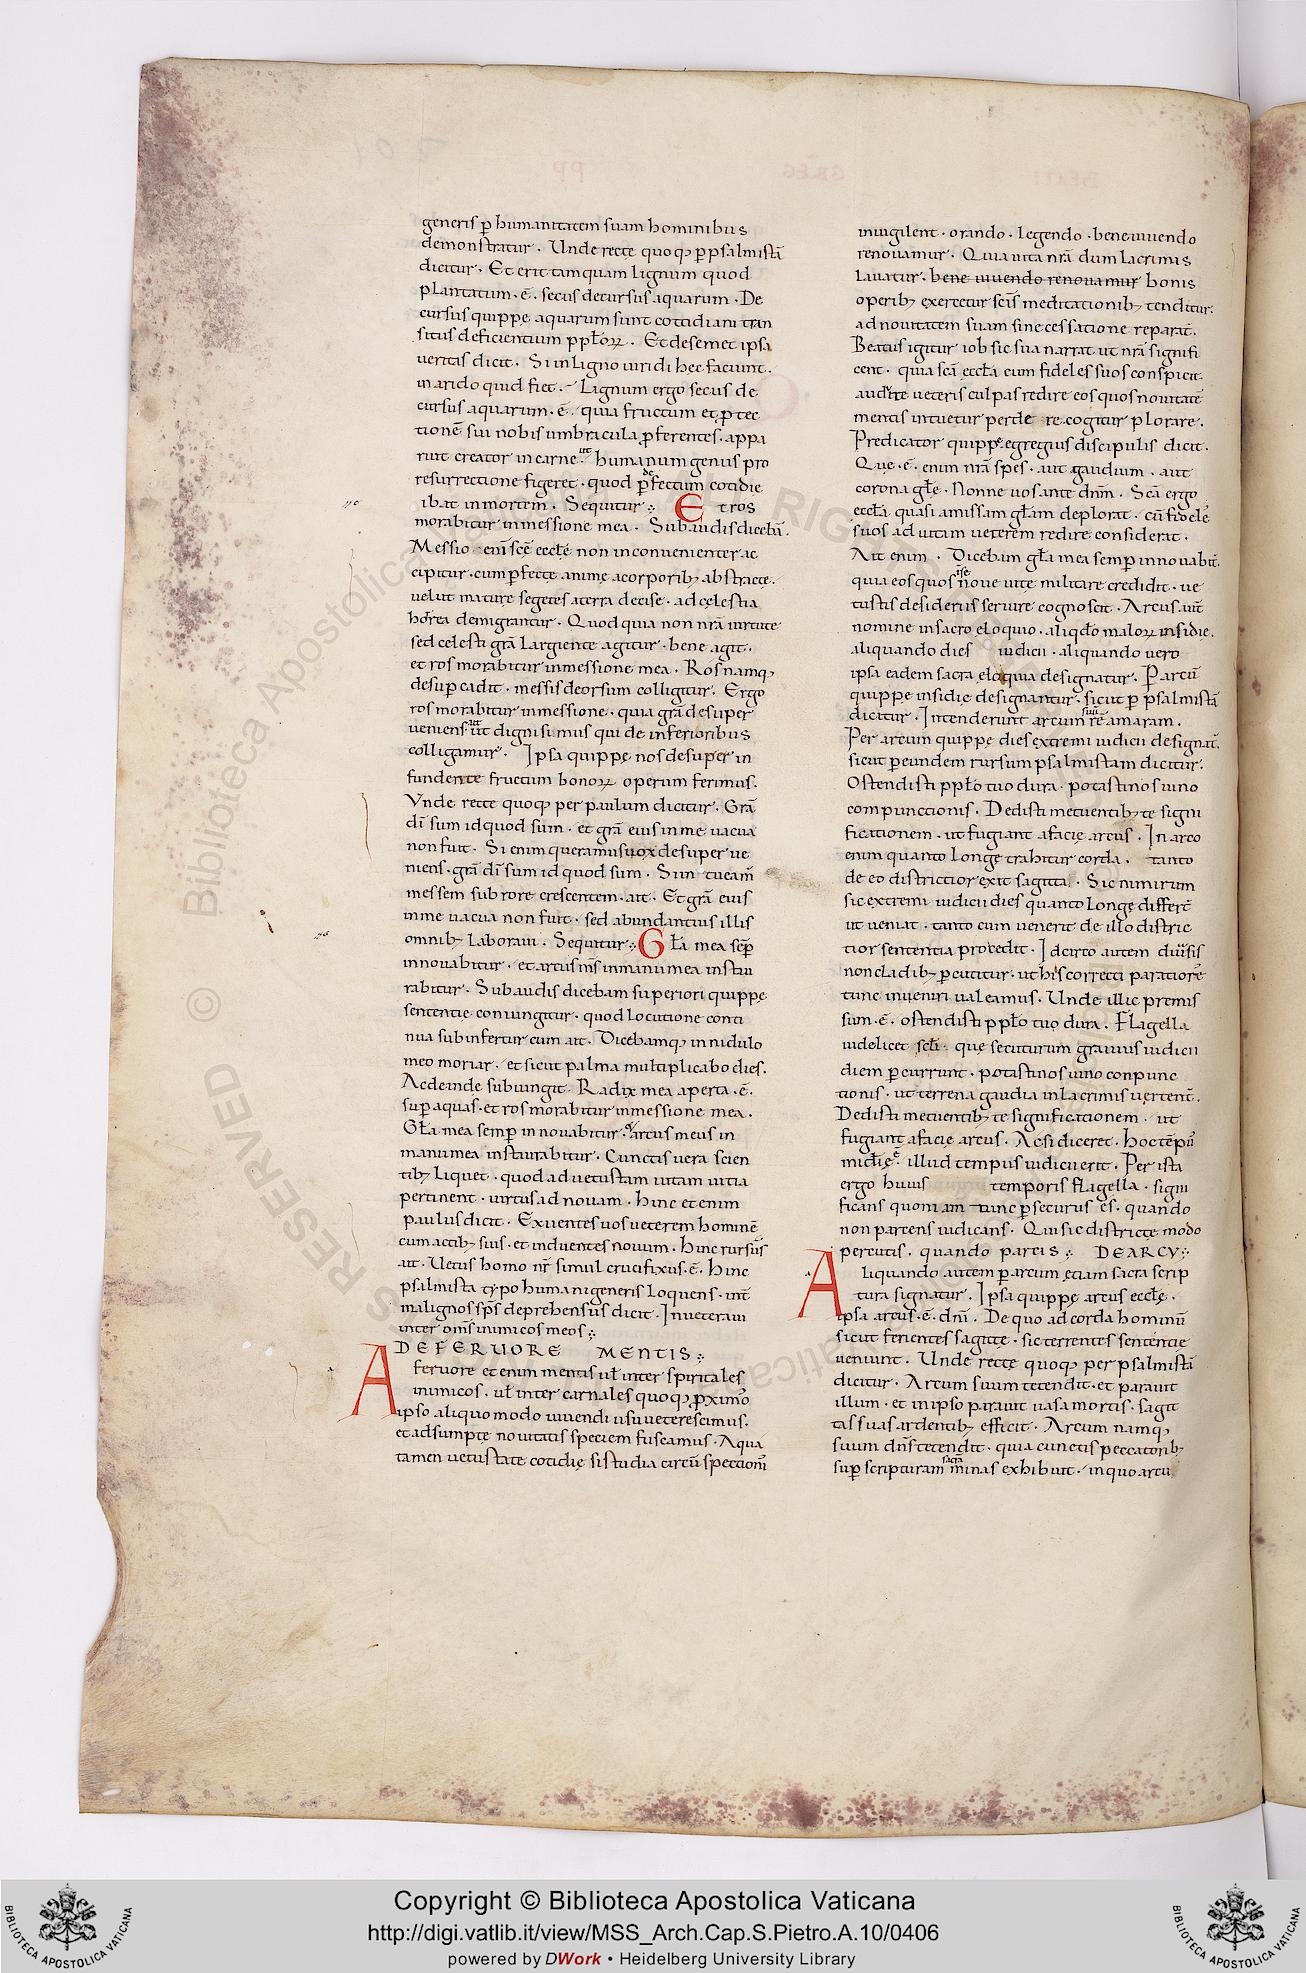 generis ꝑ humanitatem suam hominibus
demonstratur. Unde recte quoqꝫ ꝑ psalmistā
dicitur. Et erit tamquam lignum quod
plantatum .ē. secus decursus aquarum. De
cursus quippę aquarum sunt cotidiani tran
situs deficientium ppl̄oꝝ. Et de semet ipsa
veritas dicit. Si in ligno viridi hęc faciunt.
in arido quid fiet. Lignum ergo secus de
cursus aquarum .ē. quia fructum et ꝓtec
tionē sui nobis umbracula ꝓferentes. appa
ruit creator in carne. ut humanum genus pro
resurrectione figeret. quod ꝑ defectum cotidie
ibat in mortem. Sequitur. Et ros
morabitur in messione mea. Subaudis dicebā.
Messio enī scē eccłę non inconvenienter ac
cipitur. cum ꝑfectę animę a corporibꝫ abstractę.
velut maturę segetes a terra decise. ad cęlestia
horrea demigrantur. Quod quia non nrā virtute
sed celesti grā largiente agitur. bene ait.
et ros morabitur in messione mea. Ros namqꝫ
desuꝑ cadit. messis deorsum colligitur. Ergo
ros morabitur in messione. quia grā desuper
veniens ut digni simus qui de inferioribus
colligamur. Ipsa quippę nos desuper in
fundente fructum bonoꝝ operum ferimus.
Vnde recte quoqꝫ per paulum dicitur. Grā
dī sum id quod sum. et grā eius in me vacua
non fuit. Si enim queramus vox desuper ve
niens. grā dī sum id quod sum. Si in tueam̄
messem sub rore crescentem. ait. Et grā eius
in me vacua non fuit. sed abundantius illis
omnibꝫ laboravi. Sequitur. Gła mea sēꝑ
innovabitur. et arcus ms̄ in manu mea instau
rabitur. Subaudis dicebam superiori quippę
sententię coniungitur. quod locutione conti
nua subinfertur cum ait. Dicebamqꝫ in nidulo
meo moriar. et sicut palma multiplicabo dies.
Ac deinde subiungit. Radix mea aperta .ē.
suꝑ aquas. et ros morabitur in messione mea.
Gła mea semꝑ innovabitur. et arcus meus in
manu mea instaurabitur. Cunctis vera scien
tibꝫ liquet. quod ad vetustam vitam vitia
pertinent. virtus ad novam. Hinc et enim
paulus dicit. Exuentes vos veterem hominē
cum actibꝫ suis. et induentes novum. Hinc rursus
ait. Vetus homo nr̄ simul crucifixus .ē. Hinc
psalmista typo humani generis loquens. int̄
malignos sp̄s deprehensus dicit. Inveteravi
inter om̄s inimicos meos
DE FERUORE MENTIS
A fervore et enim mentis vł inter spiritales
inimicos. vł inter carnales quoqꝫ ꝓximo
ipso aliquo modo vivendi usu veterescimus.
et adsumptę novitatis speciem fuscamus. A qua
tamen vetustate cotidię si studia circū spectionī
invigilent. orando. legendo. bene vivendo
renovamur. Quia vita nrā dum lacrimis
lavatur. bene vivendo renovamur bonis
operibꝫ exercetur scīs meditationibꝫ tenditur.
ad novitatem suam sine cessatione reparat̄.
Beatus igitur iob sic sua narrat ut nrā signifi
cent. quia scā eccła cum fideles suos conspicit.
audere veteris culpas redire eos quos novitatē
mentis intuetur perde re cogitur plorare.
Predicator quippę egregius discipulis dicit.
Quę .ē. enim nrā spes. aut gaudium. aut
corona głę. Nonne vos ante dnm̄. Scā ergo
eccła quasi amissam głam deplorat. cū fideles
suos ad vitam veterem redire considerat.
Ait enim. Dicebam gła mea semper innovabit̄.
quia eos quos novę vitę militare credidit. ve
tustis desideriis servire cognoscit. Arcus aut̄
nomine in sacro eloquio. aliqdo maloꝝ insidię.
aliquando dies iudicii. aliquando vero
ipsa eadem sacra eloquia designatur. Ꝑ arcū
quippę insidię designantur. sicut ꝑ psalmistā
dicitur. Intenderunt arcum suū rē amaram.
Per arcum quippę dies extremi iudicii designat̄.
sicut ꝑ eundem rursum psalmistam dicitur.
Ostendisti ppło tuo dura. potasti nos vino
compunctionis. Dedisti metuentibꝫ te signi
ficationem. ut fugiant a facię arcus. In arco
enim quanto longę trahitur corda. tanto
de eo districtior exit sagitta. Sic nimirum
sic extremi iudicii dies quanto longę differt̄
ut veniat. tanto cum venerit de illo distric
tior sententia procedit. Idcirco autem diversis
non cladibꝫ ꝑcutitur. ut his correcti paratiorē
tunc inveniri valeamus. Unde illic premis
sum .ē. ostendisti ppło tuo dura. Flagella
videlicet scł̄i. quę secuturum gravius iudicii
diem ꝑcurrunt. potasti nos vino conpunc
tionis. ut terrena gaudia in lacrimis vertent̄.
Dedisti metuentibꝫ te significationem. ut
fugiant a facię arcus. Ac si diceret. hoc tēpū
mictię ē. illud tempus iudicii erit. Per ista
ergo huius temporis flagella. signi
ficans quoniam tunc ꝑsecurus es. quando
non parcens iudicans. Qui sic districtę modo
percutis. quando parcis DE ARCV
Aliquando autem ꝑ arcum etiam sacra scrip
tura signatur. Ipsa quippę arcus eccłę.
ipsa arcus .ē. dnī. De quo ad corda hominū
sicut ferientes sagittę. sic terrentes sententię
veniunt. Unde rectę quoqꝫ per psalmistā
dicitur. Arcum suum tetendit. et paravit
illum. et in ipso paravit vasa mortis. sagit
tas suas ardentibꝫ efficit. Arcum namqꝫ
suum dn̄s tetendit. quia cunctis peccatoribꝫ
suꝑ scripturam sacrā minas exhibuit. in quo arcu
© Biblioteca Apostolica Vaticana ALL RIGHTS RESERVED
Copyright © Biblioteca Apostolica Vaticana
http://digi.vatlib.it/view/MSS_Arch.Cap.S.Pietro.A.10/0406
powered by DWork • Heidelberg University Library
BIBLIOTECA APOSTOLICA VATICANA
BIBLIOTECA APOSTOLICA VATICANA